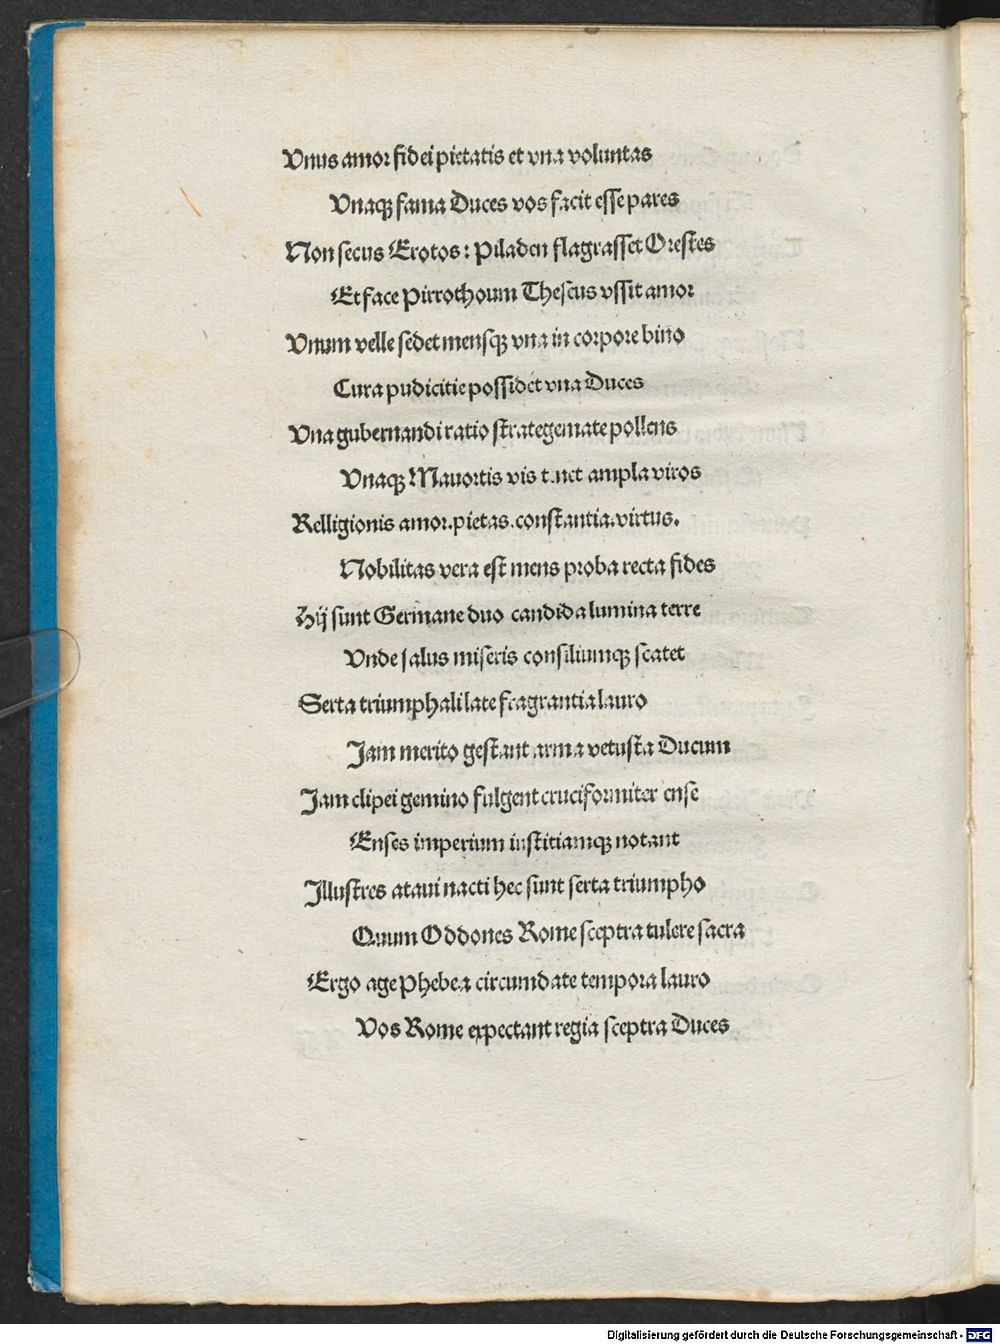 Vnus amor fidei pietatis et vna voluntas
Vnaqꝫ fama Duces vos facit esse pares
Non secus Erotos: Piladen flagrasset Orestes
Et face Pirrothoum Theseus vssit amor
Vnum velle sedet mensqꝫ vna in corpore bino
Cura pudicitie possidet vna Duces
Vna gubernandi ratio strategemate pollens
Vnaqꝫ Mauortis vis tenet ampla viros
Relligionis amor.pietas.constantia.virtus.
Nobilitas vera est mens proba recta fides
Hij sunt Germane duo candida lumina terre
Vnde salus miseris consiliumqꝫ scatet
Serta triumphali late fragrantia lauro
Jam merito gestant arma vetusta Ducum
Jam clipei gemino fulgent cruciformiter ense
Enses imperium iustitiamqꝫ notant
Jllustres ataui nacti hec sunt serta triumpho
Quum Oddones Rome sceptra tulere sacra
Ergo age Phebea circumdate tempora lauro
Vos Rome expectant regia sceptra Duces
Digitalisierung gefördert durch die Deutsche Forschungsgemeinschaft - DFG